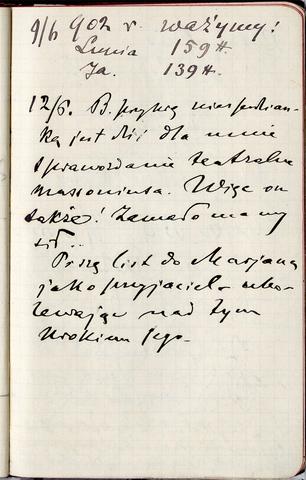 9/6 902 r. ważymy!
Lunia 159 H.
Ja. 139 H.
12/6. B. przykrą niespodzian-
ką jest dziś dla mnie
sprawozdanie teatralne
Więc on
także! Zamało mamy
sił...
Piszę list do Marjana
jako przyjaciel - ubo-
lewając nad tym
krokiem jego.